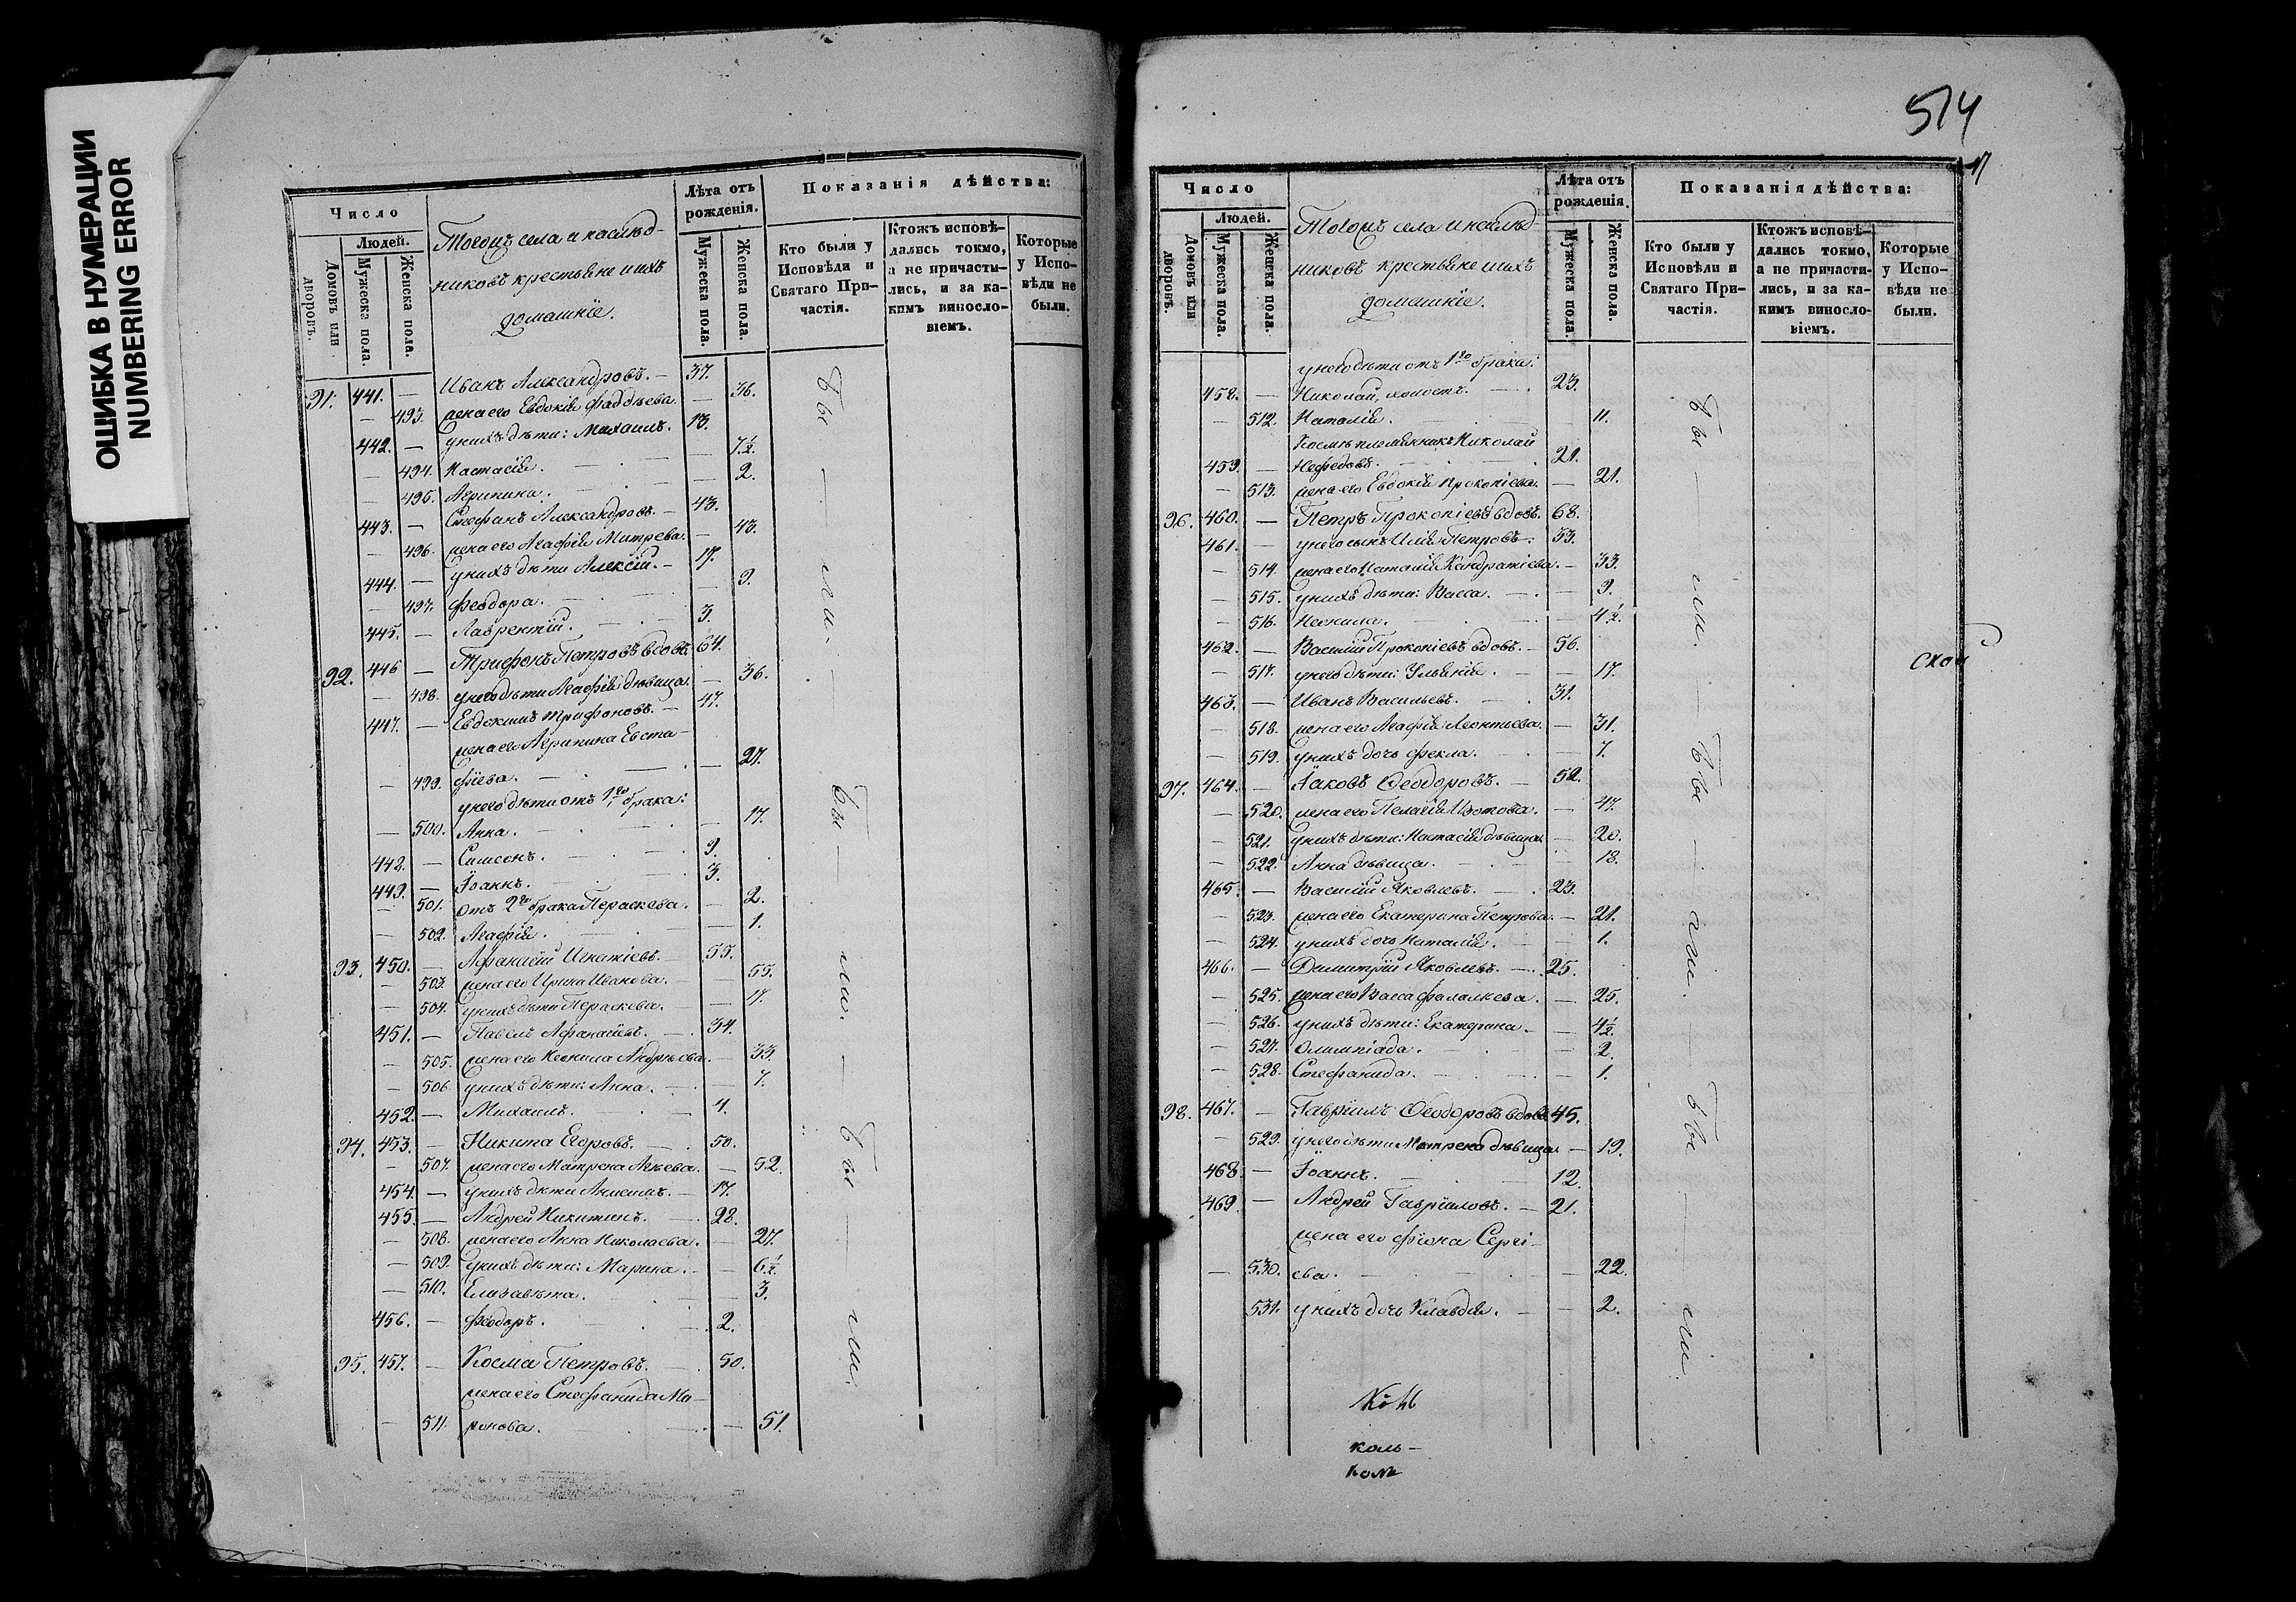 ОШИБКА В НУМЕРАЦИИ
NUMBERING ERROR
Число
Людей.
Домовъ или дворовъ.
Мужеска пола.
Женска пола.
Тогожъ села и наслѣд-
никовъ крестьяне и ихъ
домашніе.
Лѣта отъ рожденія.
Мужеска пола.
Женска пола.
Показанія дѣйства:
Кто были у Исповѣди и Святаго При-частія.
Ктожъ исповѣ-дались токмо, а не причасти-лись, и за ка-кимъ винosло-віемъ.
Которые у Испо-вѣди не были.
91. 441. — Иванъ Александровъ. — 37.
— 493. жена его Евдокія Фаддѣева. — 36.
442. — у нихъ дѣти: Михаилъ. 13.
— 494. Настасія. — 7½.
— 495. Агрипина. — 2.
443. — Стефанъ Александровъ. — 43.
— 496. жена его Агафія Митрева. — 43.
444. — у нихъ дѣти Алексій. — 17.
— 497. Феодора. — 9.
445. — Лаврентій. 3.
92. 446 — Трифонъ Петровъ вдовъ. 64.
— 498. у него дѣти Агафія дѣвица. — 36.
447. — Евдокимъ Трифоновъ. — 47.
жена его Агрипина Евста-
— 499. фіева. — 27.
у него дѣти отъ 1го брака:
— 500. Анна. — 17.
448. — Симеонъ. 9.
449. — Іоаннъ. 3.
— 501. отъ 2го брака Параскева. — 2.
— 502. Агафія. — 1.
93. 450. — Афанасій Игнатіевъ. — 55.
— 503. жена его Ирина Иванова. — 55.
— 504. у нихъ дѣти Параскева. — 17.
451. — Павелъ Афанасіевъ. — 34.
— 505. жена его Неонила Андрѣева. — 33.
— 506 у нихъ дѣти: Анна. — 7.
452. — Михаилъ. — 4.
94. 453. — Никита Егоровъ. — 50.
— 507. жена его Матрена Агѣева. — 52.
454. — у нихъ дѣти Анисимъ. — 17.
455. — Андрей Никитинъ. — 28.
— 508. жена его Анна Николаева. — 27.
— 509. у нихъ дѣти: Марина. — 6½
— 510. Елизавета. — 3.
456. — Феодоръ. — 2.
95. 457. — Косма Петровъ. — 50.
жена его Стефанида Ми-
— 511. ронова. — 51.
Бы — ли. — Бы — ли. — Бы — ли.
514
17
Число
Людей.
Домовъ или дворовъ.
Мужеска пола.
Женска пола.
Тогожъ села и наслѣд
никовъ крестьяне и ихъ
домашніе.
Лѣта отъ рожденія.
Мужеска пола.
Женска пола.
Показанія дѣйства:
Кто были у Исповѣди и Святаго При-частія.
Ктожъ исповѣ-дались токмо, а не причасти-лись, и за ка-кимъ винoсло-віемъ.
Которые у Испо-вѣди не были.
у него дѣти отъ 1го брака:
458. — Николай, холостъ. — 23.
— 512. Наталія. 11.
Космы племянникъ Николай
459. — Нефедовъ. 21.
— 513. жена его Евдокія Прокопіева. — 21.
96. 460. — Петръ Прокопіевъ вдовъ. 68.
461. — у него сынъ Илія Петровъ. 33.
— 514. жена его Наталія Кандратіева. — 33.
— 515. у нихъ дѣти: Васса. — 9.
— 516. Неонила. 4½.
462. — Василій Прокопіевъ вдовъ. — 56.
— 517. у него дѣти: Ульянія. — 17.
463. — Иванъ Васильевъ. 31.
— 518. жена его Агафія Леонтиева. — 31.
— 519. у нихъ дочь Фекла. — 7.
97. 464. — Іаковъ Феодоровъ. — 52.
— 520. жена его Пелагія Изотова. — 47.
— 521. у нихъ дѣти: Настасія дѣвица. — 20.
— 522. Анна дѣвица. 18.
465. — Василій Яковлевъ. — 23.
— 523. жена его Екатерина Петрова. — 21.
— 524. у нихъ дочь Наталія. — 1.
466. — Димитрій Яковлевъ. — 25.
— 525. жена его Васса Фалалеева. — 25.
— 526. у нихъ дѣти: Екатерина. — 4½.
— 527. Олимпіада. — 2.
— 528. Стефанида. — 1.
98. 467. — Гавріилъ Феодоровъ вдовъ 45.
— 529. у него дѣти Матрена дѣвица. — 19.
468 — Іоаннъ. 12.
469. — Андрей Гавріиловъ. — 21.
жена его Фіона Сергі-
— 530. ева. — 22.
531. у нихъ дочь Клавдія. — 2.
Бы — ли. — Бы — ли. — Бы — ли.
скои
коль-
комъ